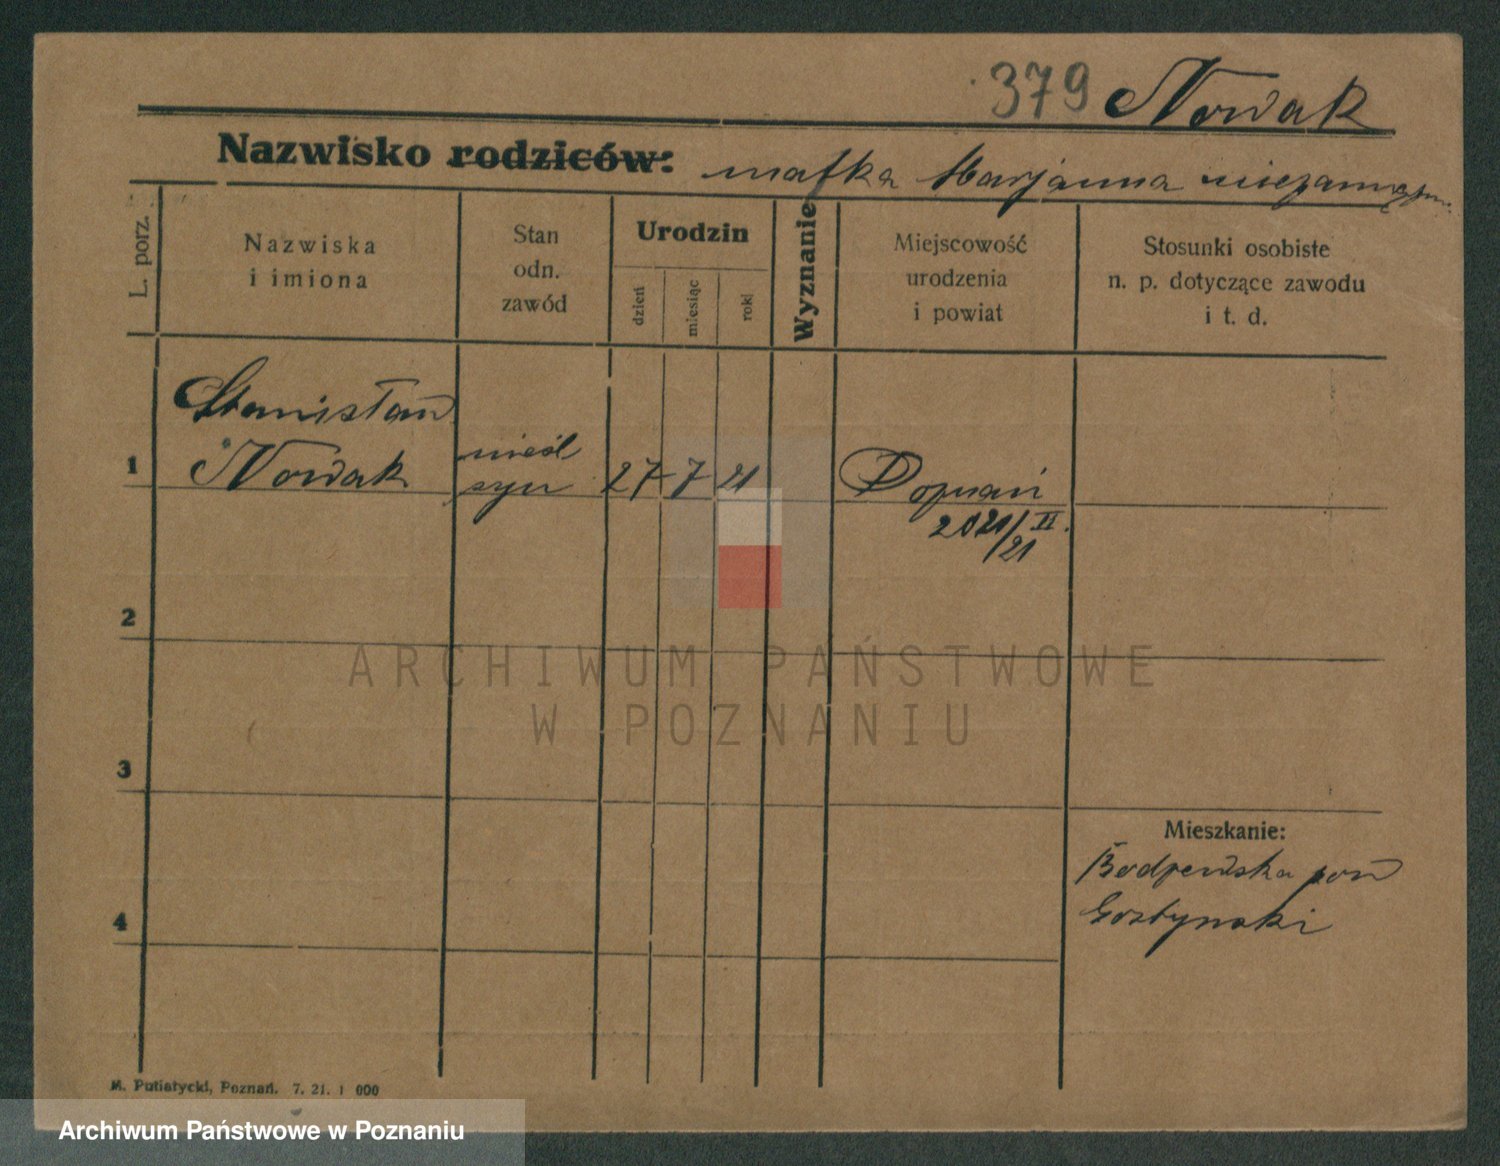 379 Nowak
Nazwisko rodziców: matka Marjanna niezamężn.
L. porz.
Nazwiska
i imiona
Stan
odn.
zawód
Urodzin
dzień
miesiąc
roki
Wyznanie
Miejscowość
urodzenia
i powiat
Stosunki osobiste
n. p. dotyczące zawodu
i t. d.
Stanisław
1 Nowak
nieśl
syn
27 7 21
Poznań
2021/II.
/21
2
3
4
Mieszkanie:
pow
Gostynski
M. Putiatycki, Poznań. 7. 21. 1 000
ARCHIWUM PAŃSTWOWE
W POZNANIU
Archiwum Państwowe w Poznaniu